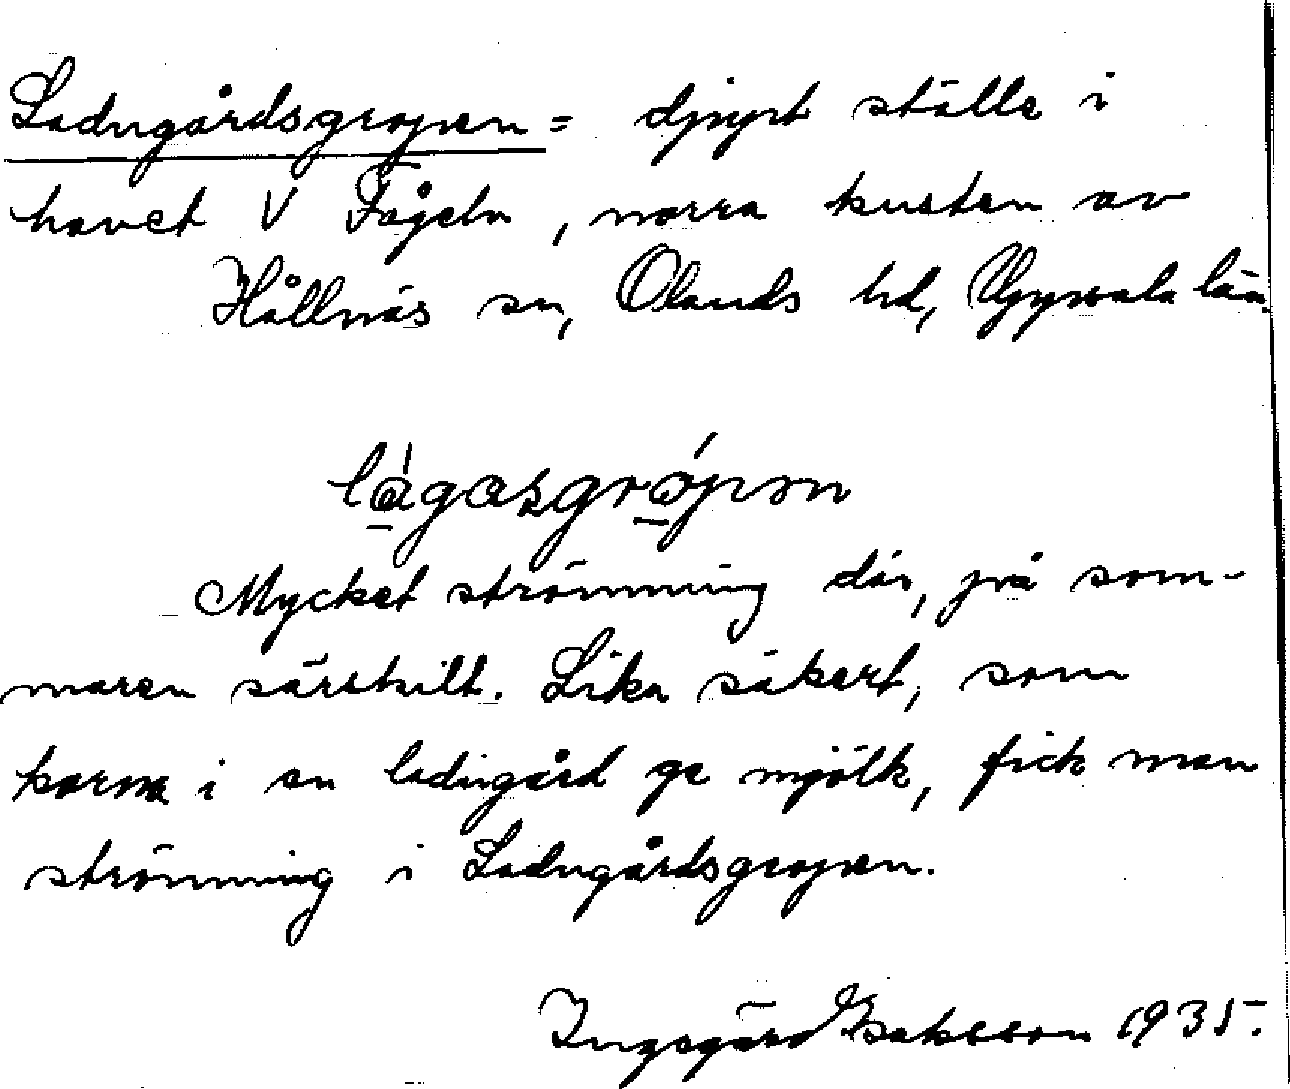 Ladugårdsgropen = djupt ställe i
havet V Fågeln, norra kusten av
Hållnäs sn, Olands hd, Uppsala län.
Mycket strömming där, på som-
maren särskilt. Lika säkert, som
korna i en ladugård ge mjölk, fick man
strömming i Ladugårdsgropen.
Ingegärd Isaksson 1935.